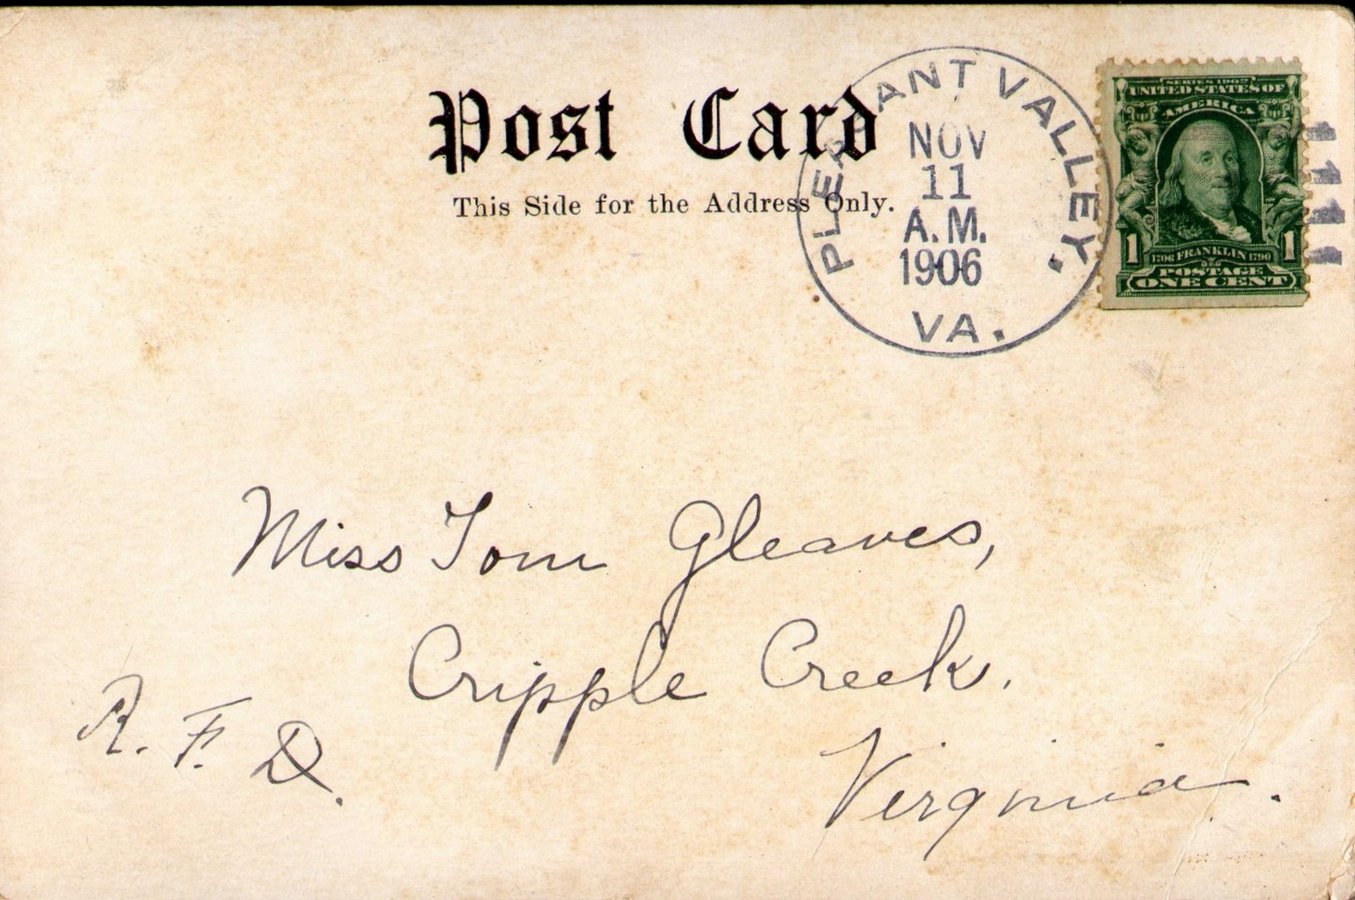 Post Card
This Side for the Address Only.
PLEASANT VALLEY.
NOV
11
A.M.
1906
VA.
SERIES 1902
UNITED STATES OF
AMERICA
1 1
1706 FRANKLIN 1790
POSTAGE
ONE CENT
Miss Tom Gleaves,
Cripple Creek.
R. F. D.
Virginia.